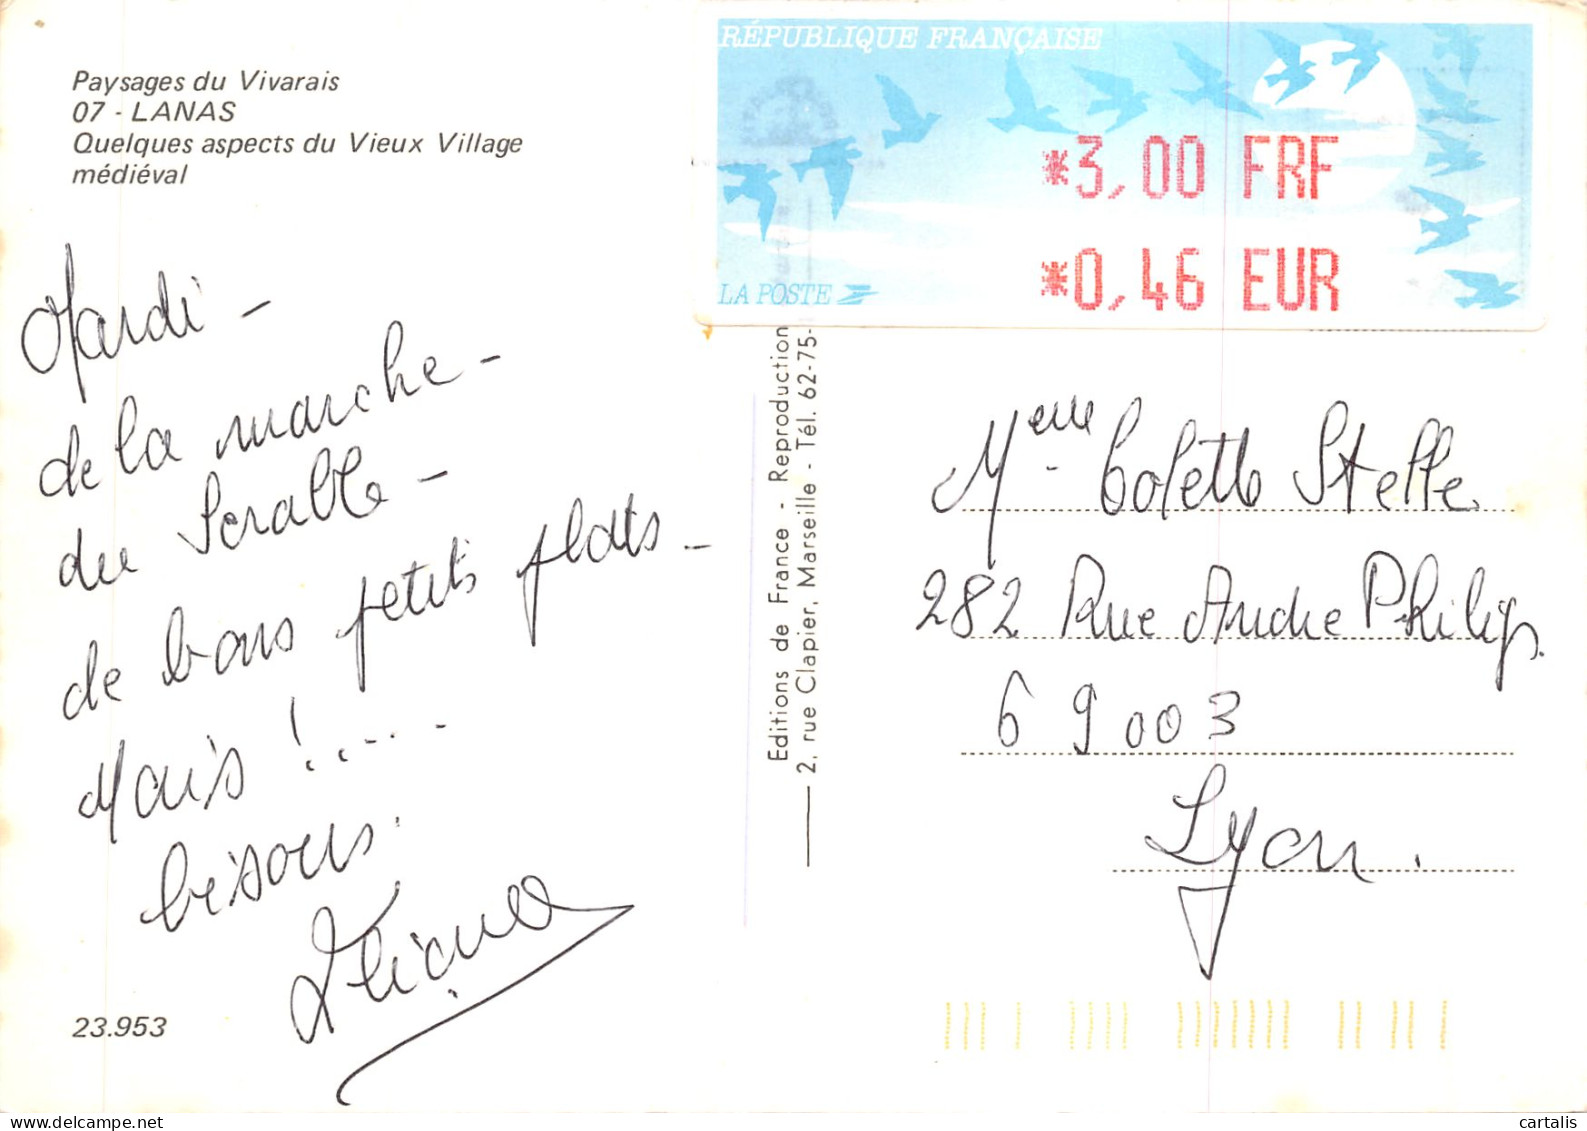 Paysages du Vivarais
07 - LANAS
Quelques aspects du Vieux Village
médiéval
Mardi -
de la marche -
du Scrabble -
de bons petits plats -
Mais !.....
bisous.
23.953
RÉPUBLIQUE FRANÇAISE
*3,00 FRF
*0,46 EUR
LA POSTE
Editions de France - Reproduction
2, rue Clapier, Marseille - Tél. 62-75-
Mme Colette Stelle
282 Rue Andre Philip.
69003
Lyon.
cartalis
www.delcampe.net